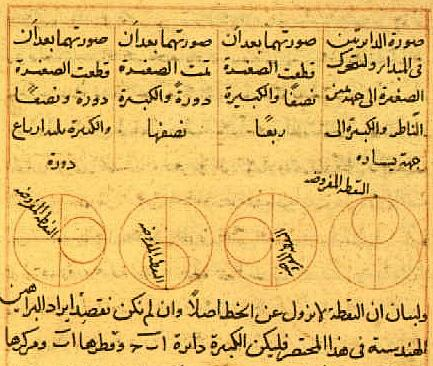 صورة الدايرتين
فى المبدا ولتتحرك
الصغيرة الى جهة يمين
الناظر والكبيرة الى
جهة يساره
صورتهما بعد ان
قطعت الصغيرة
نصفًا والكبيرة
ربعًا
صورتهما بعد ان
تمت الصغيرة
دورةً والكبيرة
نصفها
صورتهما بعد ان
قطعت الصغيرة
دورة ونصفًا
والكبيرة ثلثة ارباع
دورة
النقطة المفروضة
النقطة المفروضة
النقطة المفروضة
النقطة المفروضة
ولبيان ان النقطة لا تزول عن الخط اصلًا وان لم تكن نقصد ايراد البراهين
الهندسية فى هذا المختصر فليكن الكبيرة دائرة وقطرها ا ب ومركزها